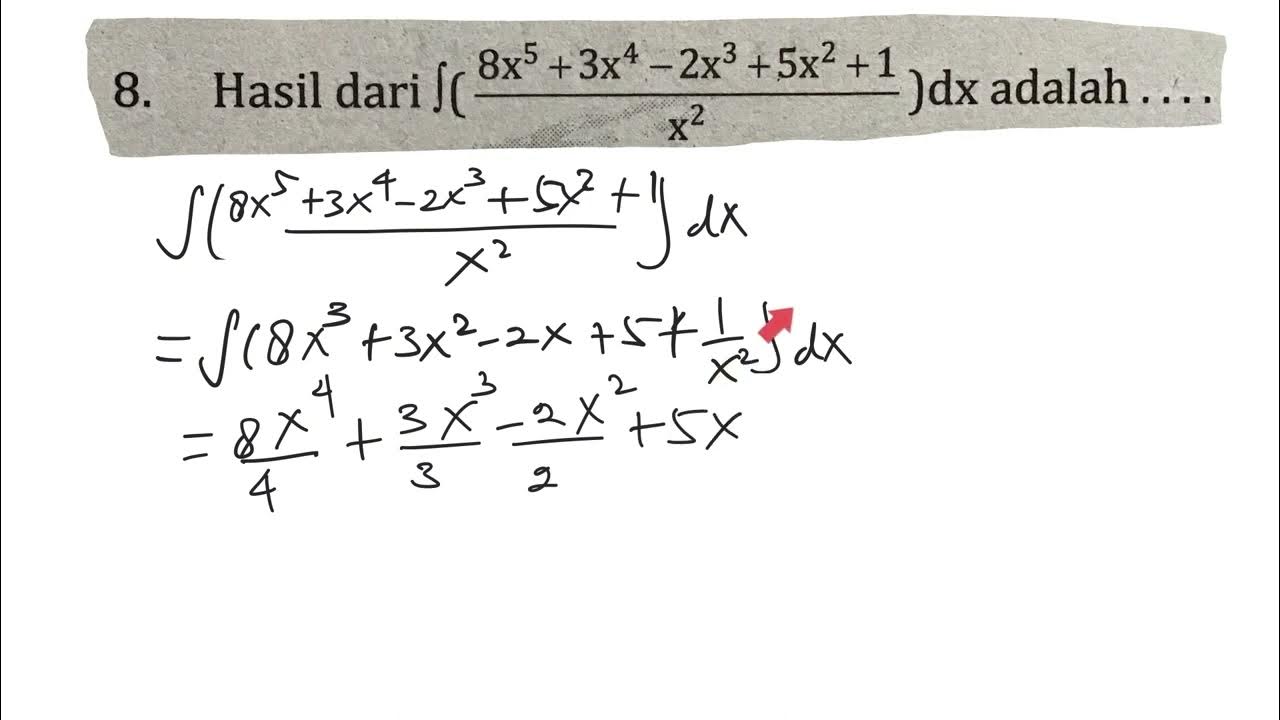 8. Hasil dari ∫( (8x⁵ + 3x⁴ − 2x³ + 5x² + 1)/x² )dx adalah . . . .
∫( (8x⁵ + 3x⁴ − 2x³ + 5x² + 1)/x² ) dx
= ∫(8x³ + 3x² − 2x + 5 + 1/x²) dx
= 8x⁴/4 + 3x³/3 − 2x²/2 + 5x